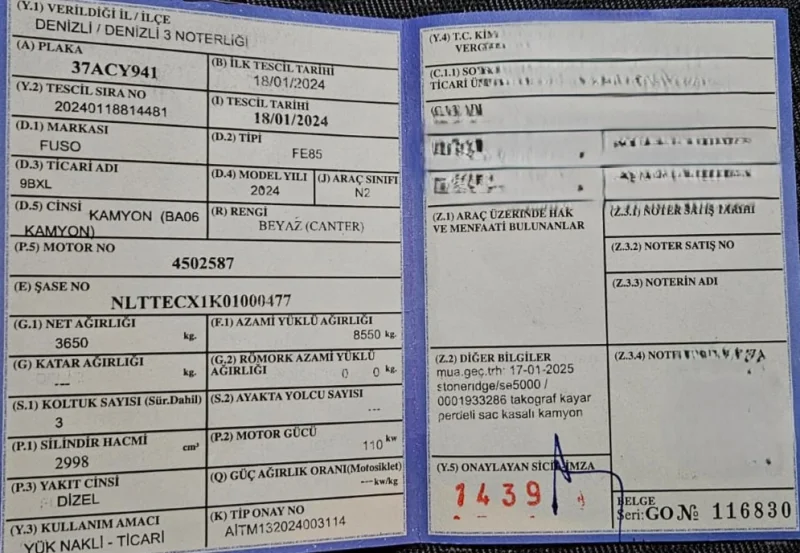 (Y.1) VERİLDİĞİ İL / İLÇE
DENİZLİ / DENİZLİ 3 NOTERLİĞİ
(A) PLAKA
37ACY941
(B) İLK TESCİL TARİHİ
18/01/2024
(Y.2) TESCİL SIRA NO
20240118814481
(I) TESCİL TARİHİ
18/01/2024
(D.1) MARKASI
FUSO
(D.2) TİPİ
FE85
(D.3) TİCARİ ADI
9BXL
(D.4) MODEL YILI
2024
(J) ARAÇ SINIFI
N2
(D.5) CİNSİ KAMYON (BA06
KAMYON)
(R) RENGİ
BEYAZ (CANTER)
(P.5) MOTOR NO
4502587
(E) ŞASE NO
NLTTECX1K01000477
(G.1) NET AĞIRLIĞI
3650 kg.
(F.1) AZAMİ YÜKLÜ AĞIRLIĞI
8550 kg.
(G) KATAR AĞIRLIĞI
--- kg.
(G,2) RÖMORK AZAMİ YÜKLÜ
AĞIRLIĞI 0 0 kg.
(S.1) KOLTUK SAYISI (Sür.Dahil)
3
(S.2) AYAKTA YOLCU SAYISI
---
(P.1) SİLİNDİR HACMİ
2998 cm³
(P.2) MOTOR GÜCÜ
110 kw
(P.3) YAKIT CİNSİ
DİZEL
(Q) GÜÇ AĞIRLIK ORANI(Motosiklet)
---kw/kg
(Y.3) KULLANIM AMACI
YÜK NAKLİ - TİCARİ
(K) TİP ONAY NO
AİTM132024003114
(Y.4) T.C.
(C.1.1)
TİCARİ
(Z.1) ARAÇ ÜZERİNDE HAK
VE MENFAATİ BULUNANLAR
(Z.3.1) NOTER SATIŞ TARİHİ
(Z.3.2) NOTER SATIŞ NO
(Z.3.3) NOTERİN ADI
(Z.2) DİĞER BİLGİLER
mua.geç.trh: 17-01-2025
stoneridge/se5000 /
0001933286 takograf kayar
perdeli sac kasalı kamyon
(Z.3.4)
(Y.5) ONAYLAYAN SİCİL İMZA
1439
BELGE
Seri: GO № 116830